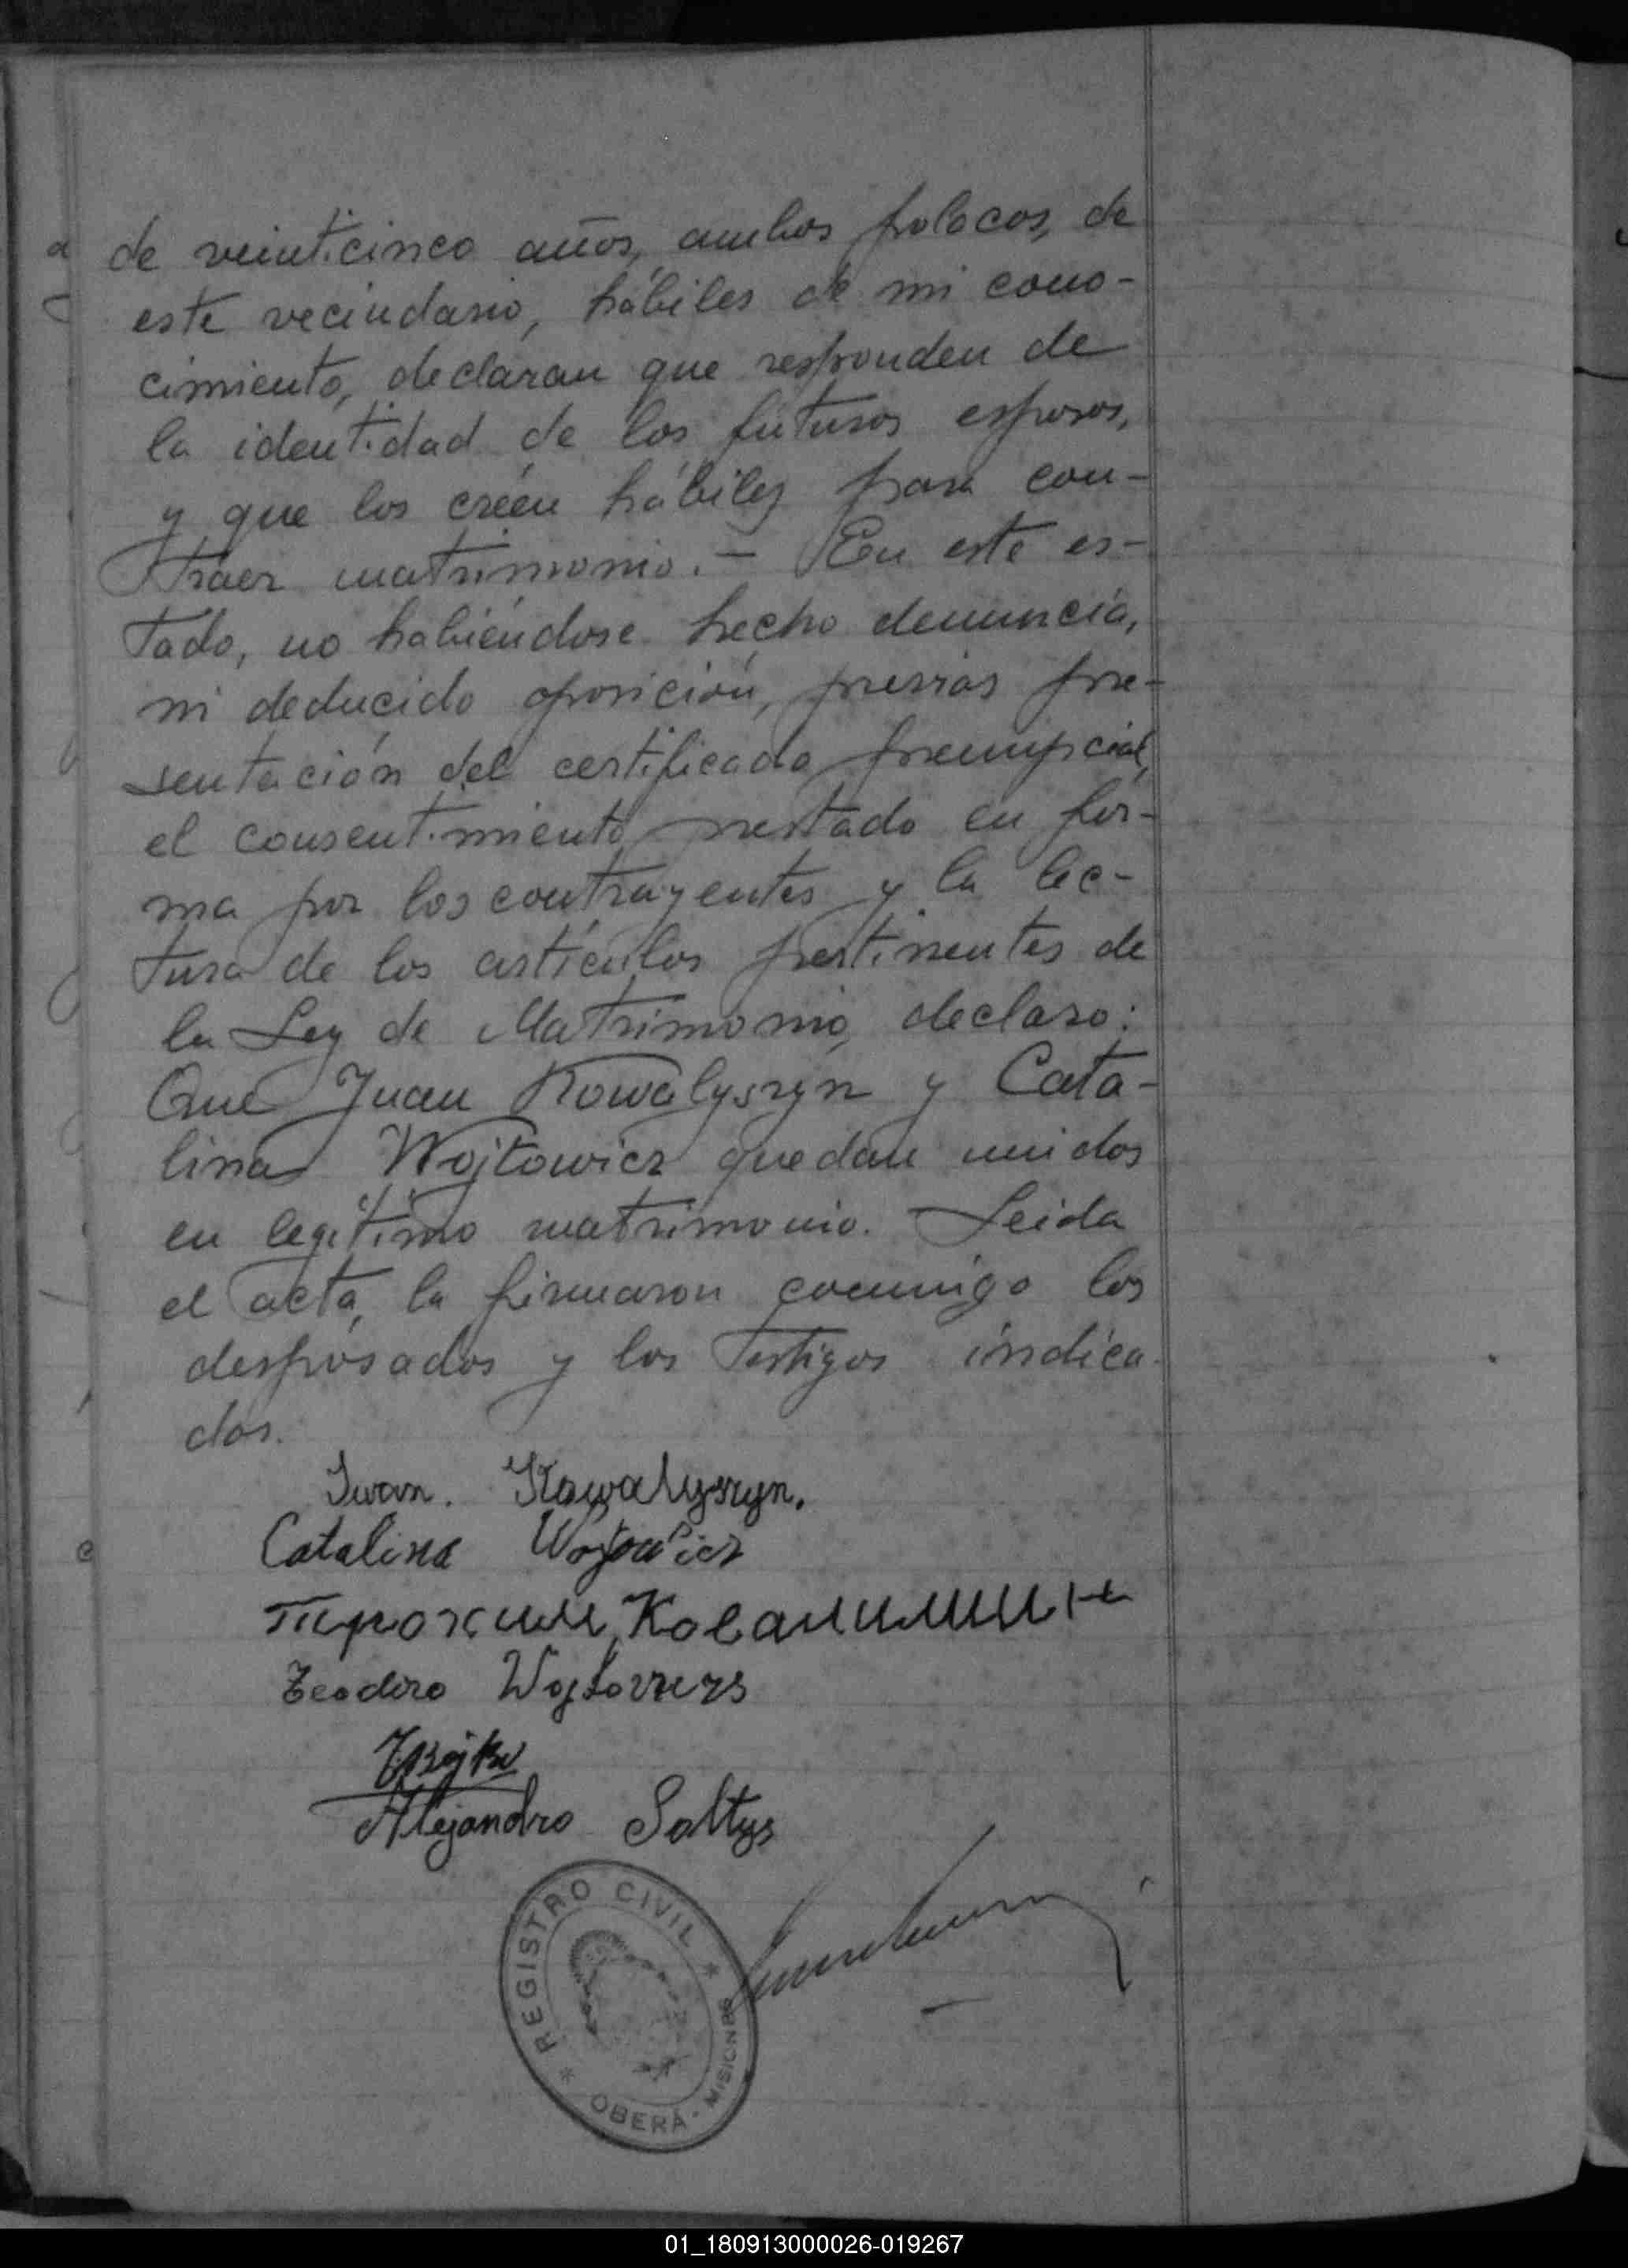 de veinticinco años, ambos polacos, de
este vecindario, hábiles de mi cono-
cimiento, declaran que responden de
la identidad de los futuros esposos,
y que los créen hábiles para con-
traer matrimonio.- En este es-
tado, no habiéndose hecho denuncia,
ni deducido oposición, previas pre-
sentación del certificado prenupcial,
el consentimiento prestado en for-
ma por los contrayentes y la lec-
tura de los artículos pertinentes de
la Ley de Matrimonio, declaro:
Que Juan Kowalyszyn y Cata-
lina Wojtowicz quedan unidos
en legítimo matrimonio. Leida
el acta, la firmaron conmigo los
desposados y los testigos indica
dos.
Iwan. Kowalyszyn.
Catalina
Трохим Ковалишин
Teodoro
Alejandro Soltys
* REGISTRO CIVIL *
OBERÁ - MISIONES
01_180913000026-019267